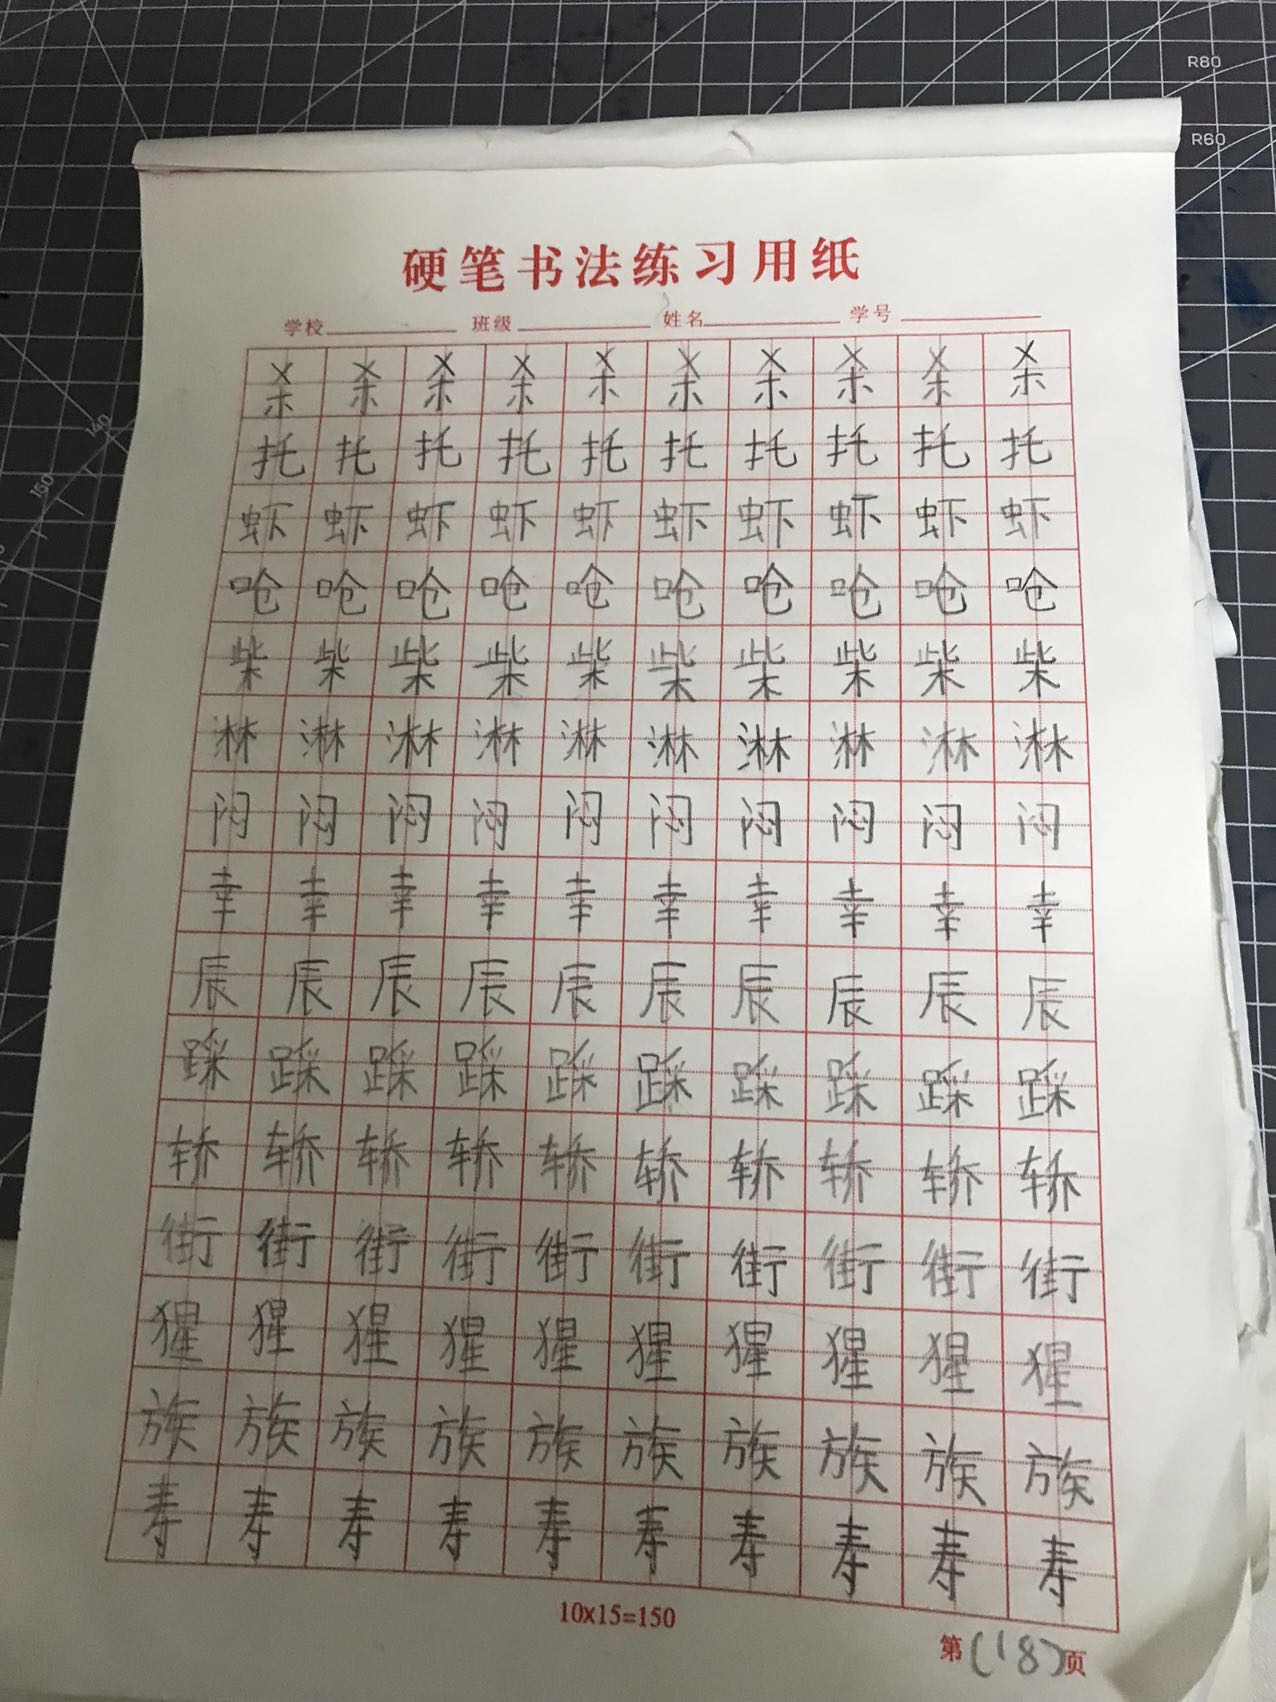 R80
R60
140
150
硬笔书法练习用纸
学校 班级 姓名 学号
杀杀杀杀杀杀杀杀杀杀
托托托托托托托托托托
虾虾虾虾虾虾虾虾虾虾
呛呛呛呛呛呛呛呛呛呛
柴柴柴柴柴柴柴柴柴柴
淋淋淋淋淋淋淋淋淋淋
闷闷闷闷闷闷闷闷闷闷
幸幸幸幸幸幸幸幸幸幸
辰辰辰辰辰辰辰辰辰辰
踩踩踩踩踩踩踩踩踩踩
轿轿轿轿轿轿轿轿轿轿
街街街街街街街街街街
猩猩猩猩猩猩猩猩猩猩
族族族族族族族族族族
寿寿寿寿寿寿寿寿寿寿
10x15=150
第(18)页